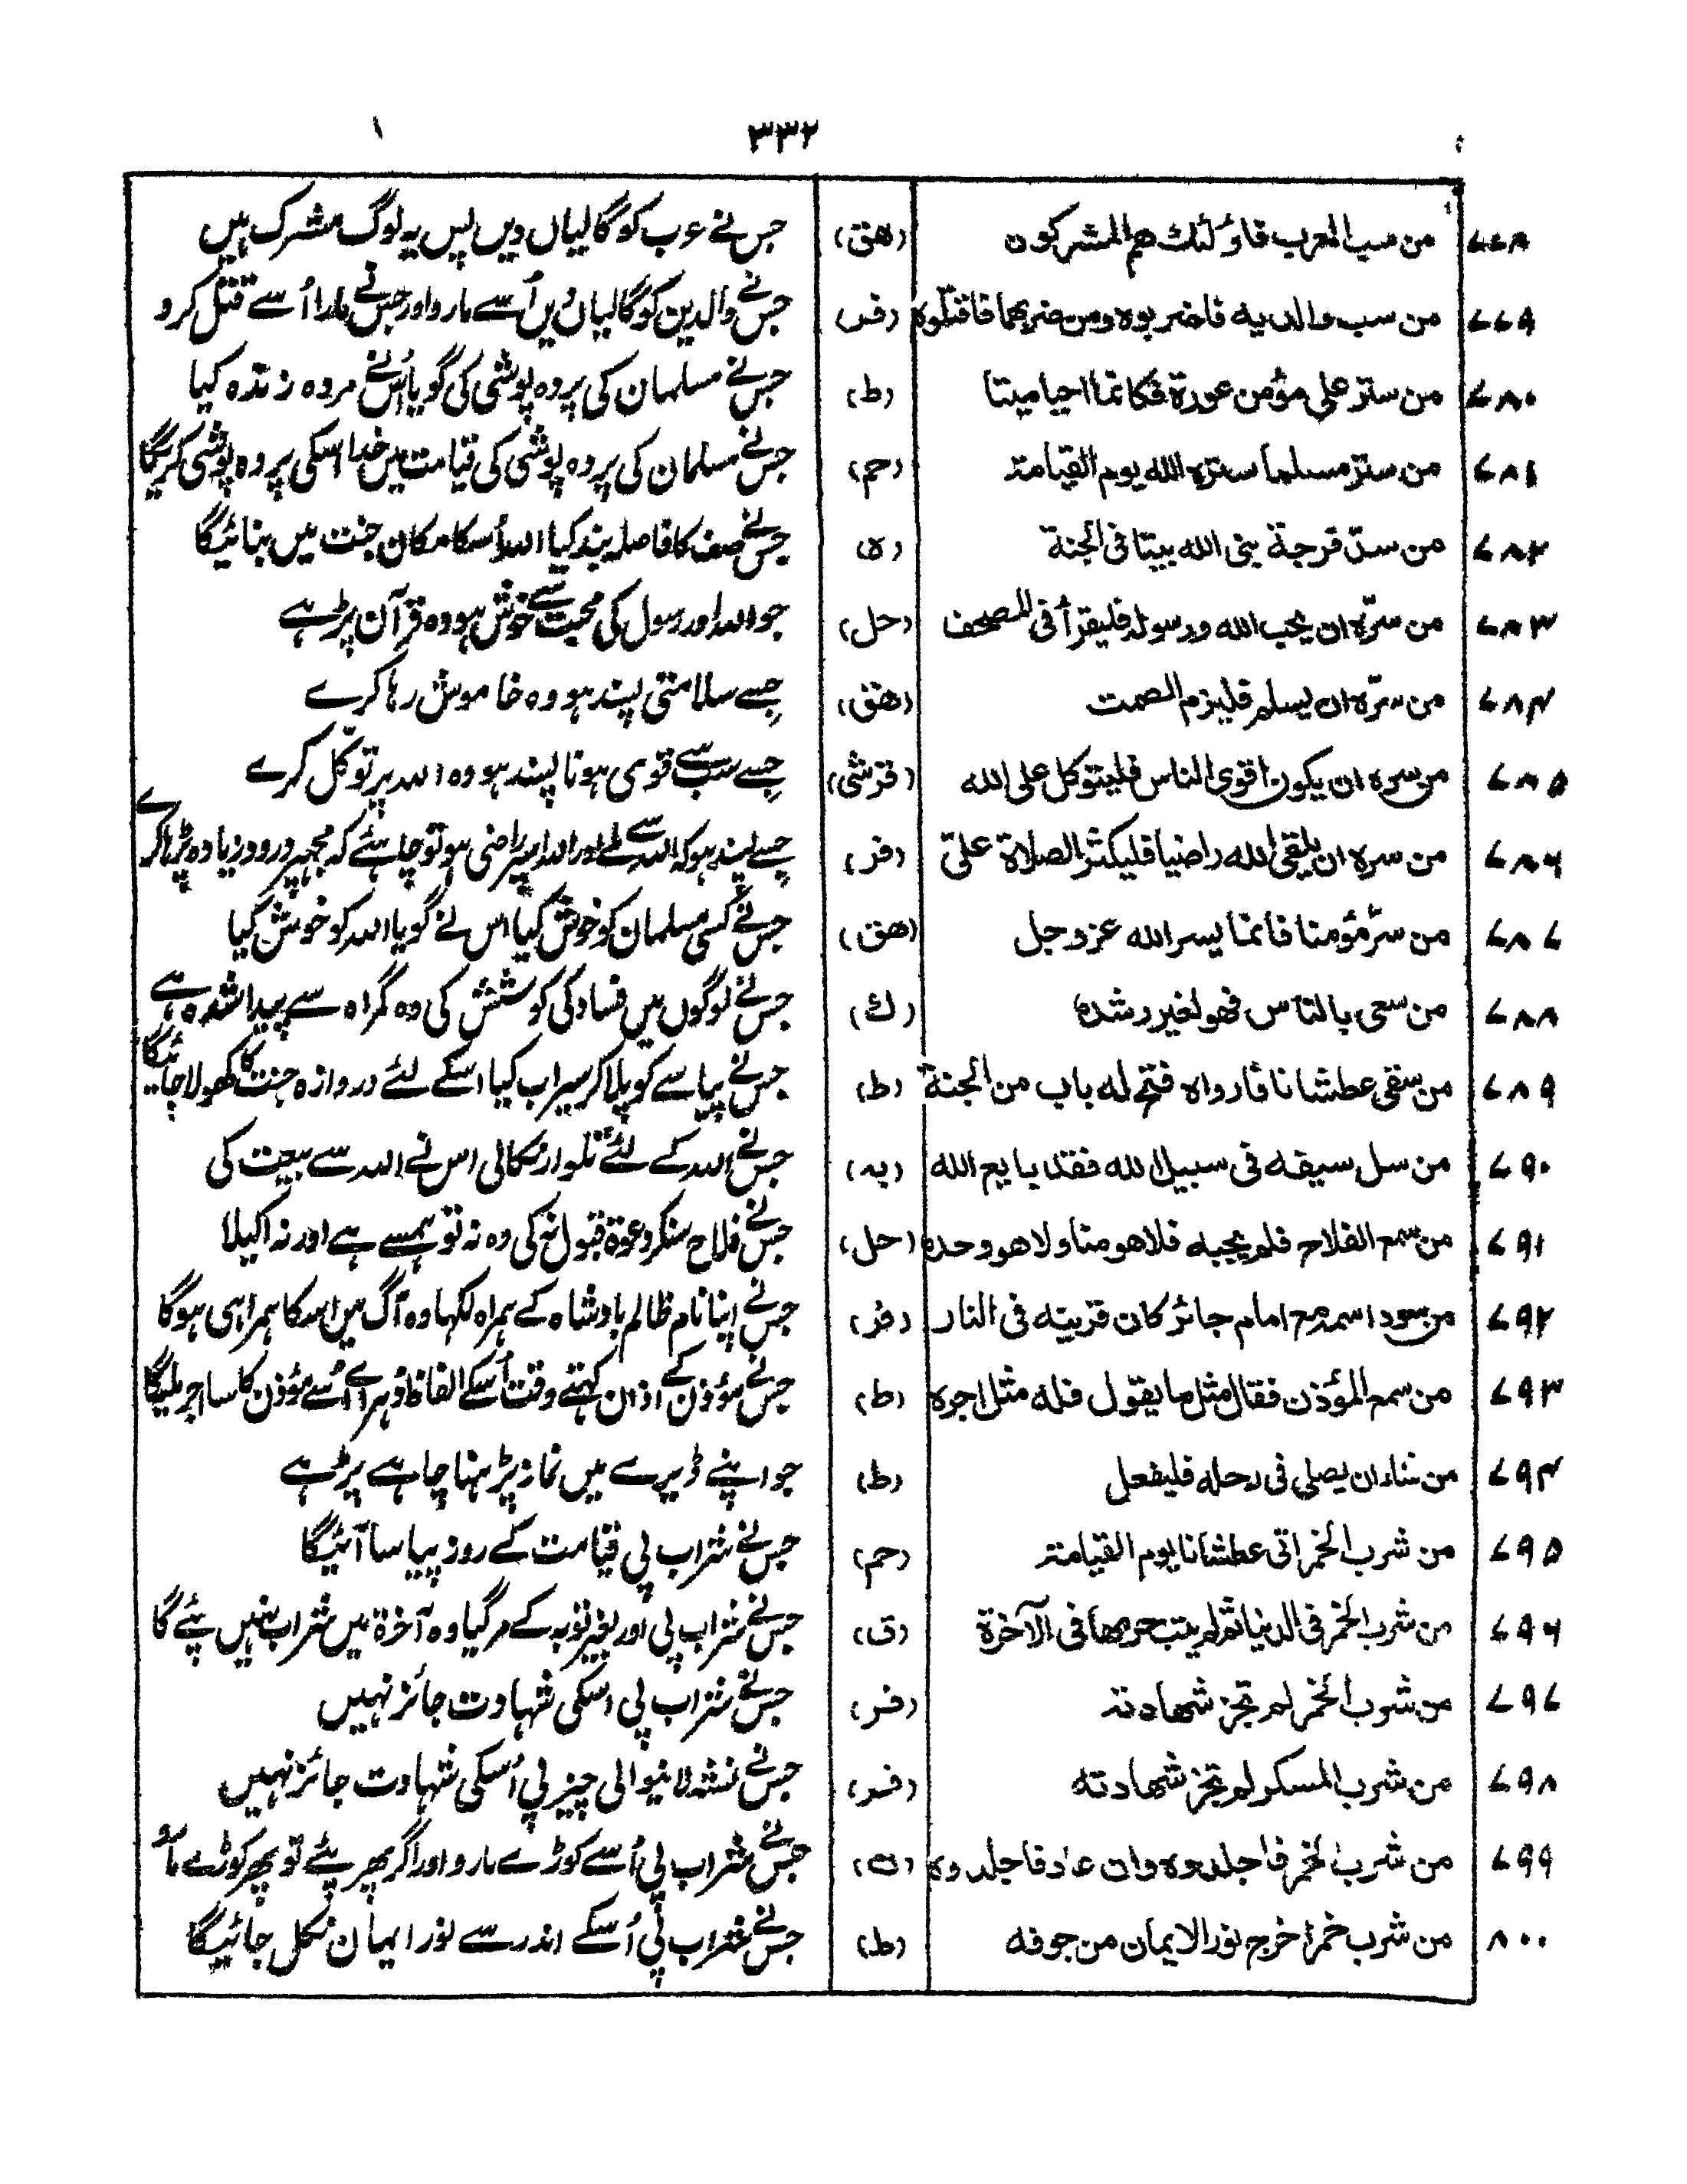 ۳۳۲
۷۷۸ من سب العرب فاولئك هم المشركون (هق) جس نے عرب کو گالیاں دیں پس یہ لوگ مشرک ہیں
۷۷۹ من سب والديه فاضربوه ومن ضربهما فاقتلوه (فر) جس نے والدین کو گالیاں دیں اُسے مارو اور جس نے مارا اُسے قتل کرو
۷۸۰ من ستر على مؤمن عورة فكانما احيا ميتا (ط) جس نے مسلمان کی پردہ پوشی کی گویا اُس نے مردہ زندہ کیا
۷۸۱ من ستر مسلما ستره الله يوم القيامة (حم) جس نے مسلمان کی پردہ پوشی کی قیامت میں خدا اسکی پردہ پوشی کریگا
۷۸۲ من سدّ فرجة بنى الله بيتا فى الجنة (ه) جس نے صف کا فاصلہ بند کیا اللہ اُسکا مکان جنت میں بنائیگا
۷۸۳ من سرّه ان يحب الله ورسوله فليقرأ فى المصحف (حل) جو اللہ اور رسول کی محبت سے خوش ہو وہ قرآن پڑہے
۷۸۴ من سرّه ان يسلم فليزم الصمت (هق) جسے سلامتی پسند ہو وہ خاموش رہا کرے
۷۸۵ من سره ان يكون اقوى الناس فليتوكل على الله (قرشی) جسے سب سے قوی ہونا پسند ہو وہ اللہ پر توکّل کرے
۷۸۶ من سره ان يلقى الله راضيا فليكثر الصلاة علىّ (فر) جسے پسند ہو کہ اللہ سے ملے اور اللہ اسپر راضی ہو تو چاہئے کہ مجہپر درود زیادہ پڑہا کرے
۷۸۷ من سرّ مؤمنا فانما يسر الله عز وجل (هق) جس نے کسی مسلمان کو خوش کیا اس نے گویا اللہ کو خوش کیا
۷۸۸ من سعى بالناس فهو لغير رشده (ك) جس نے لوگوں میں فساد کی کوشش کی وہ گمراہ سے پیدا شدہ ہے
۷۸۹ من سقى عطشانا فارواه فتح له باب من الجنة (ط) جس نے پیاسے کو پلا کر سیراب کیا اسکے لئے دروازہ جنت کا کھولا جائیگا
۷۹۰ من سل سيفه فى سبيل الله فقد بايع الله (یہ) جس نے اللہ کے لئے تلوار نکالی اس نے اللہ سے بیعت کی
۷۹۱ من سمع الفلاح فلم يجبه فلا هو منا ولا هو وحده (حل) جس نے فلاح سنکر دعوۃ قبول نہ کی وہ نہ تو ہمسے ہے اور نہ اکیلا
۷۹۲ من سود اسمه مع امام جائر كان قرينه فى النار (فر) جس نے اپنا نام ظالم بادشاہ کے ہمراہ لکہا وہ آگ میں اسکا ہمراہی ہوگا
۷۹۳ من سمع المؤذن فقال مثل ما يقول فله مثل اجره (ط) جس نے مؤذن کے اذان کہتے وقت اُسکے الفاظ دُہرائے اُسے مؤذن کا سا اجر ملیگا
۷۹۴ من شاء ان يصلى فى رحله فليفعل (ط) جو اپنے ڈیرے میں نماز پڑہنا چاہے پڑہے
۷۹۵ من شرب الخمر اتى عطشانا يوم القيامة (حم) جس نے شراب پی قیامت کے روز پیاسا آئیگا
۷۹۶ من شرب الخمر فى الدنيا ثم لم يتب حرمها فى الآخرة (ق) جس نے شراب پی اور بغیر توبہ کے مرگیا وہ آخرۃ میں شراب نہیں پئے گا
۷۹۷ من شرب الخمر لم تجز شهادته (فر) جس نے شراب پی اسکی شہادت جائز نہیں
۷۹۸ من شرب المسكر لم تجز شهادته (فر) جس نے نشہ لانیوالی چیز پی اُسکی شہادت جائز نہیں
۷۹۹ من شرب الخمر فاجلدوه وان عاد فاجلدوه جس نے شراب پی اُسے کوڑے مارو اور اگر پھر پئے تو پھر کوڑے مارو
۸۰۰ من شرب خمرا خرج نور الايمان من جوفه (ط) جس نے شراب پی اُسکے اندر سے نور ایمان نکل جائیگا